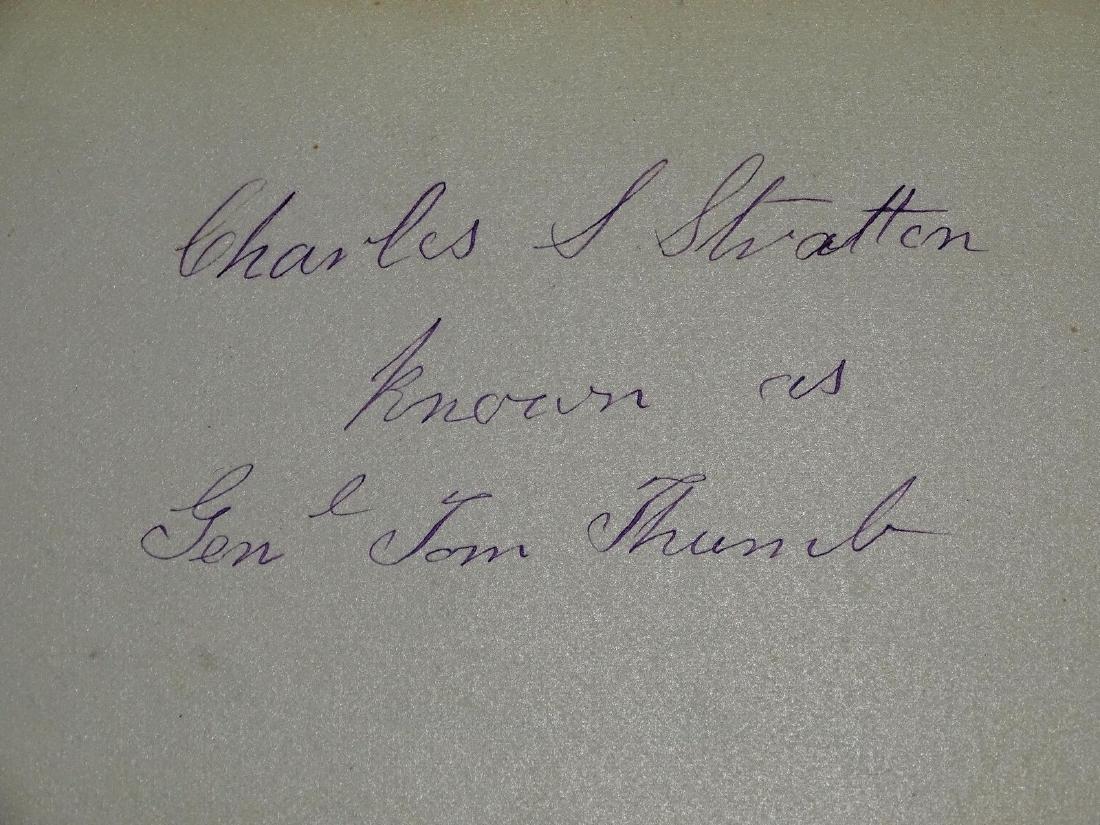 Charles S Stratton
known as
Genl Tom Thumb